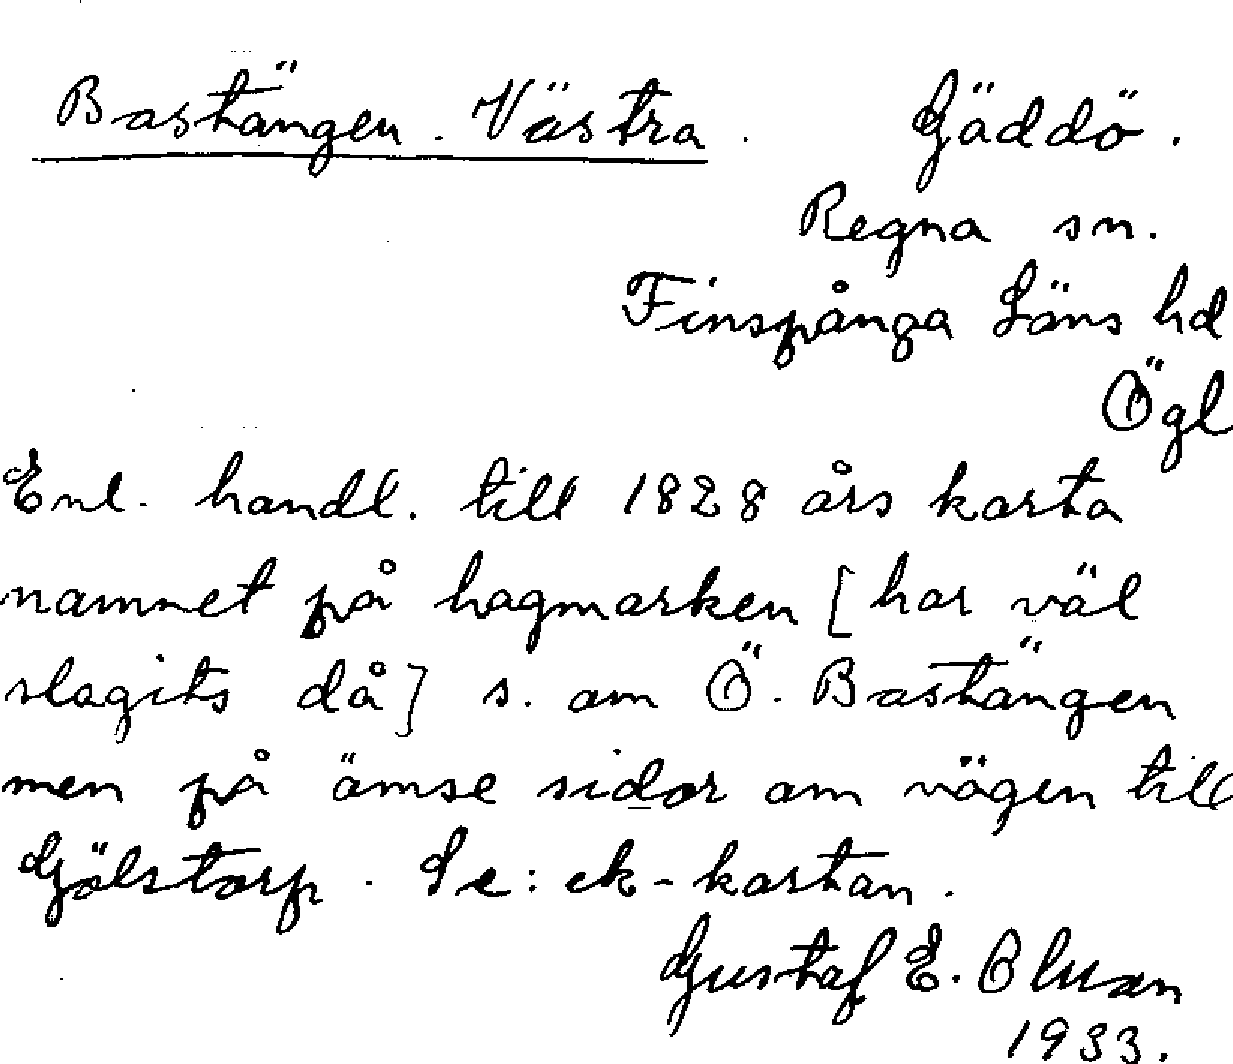 Bastängen. Västra. Gäddö.
Regna sn.
Finspånga Läns hd
Ögl
Enl. handl. till 1828 års karta
namnet på hagmarken [har väl
slagits då] s. om Ö. Bastängen
men på ömse sidor om vägen till
Gölstorp. Se: ek-kartan.
Gustaf E. Olsson
1933.